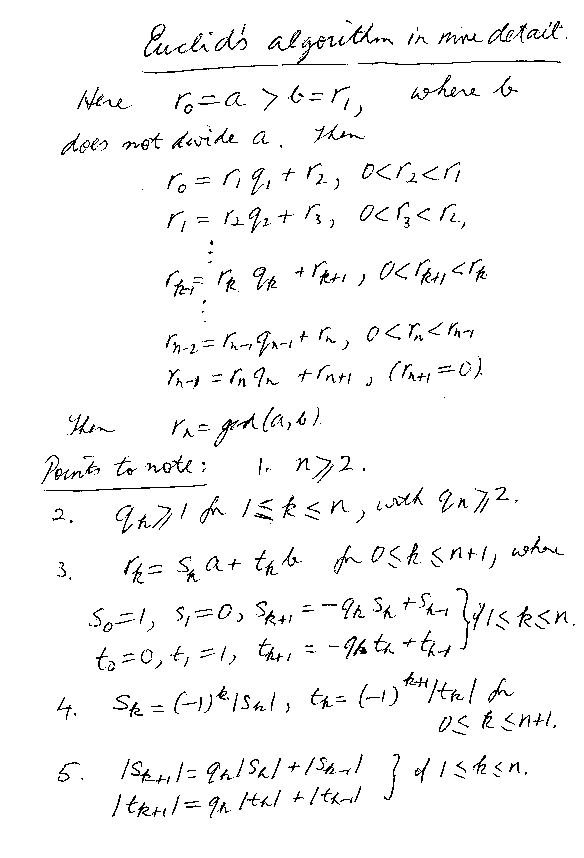 Euclid's algorithm in more detail.
Here r₀ = a > b = r₁, where b
does not divide a. Then
r₀ = r₁ q₁ + r₂, 0 < r₂ < r₁
r₁ = r₂ q₂ + r₃, 0 < r₃ < r₂,
⋮
rₖ₋₁ = rₖ qₖ + rₖ₊₁, 0 < rₖ₊₁ < rₖ
⋮
rₙ₋₂ = rₙ₋₁ qₙ₋₁ + rₙ, 0 < rₙ < rₙ₋₁
rₙ₋₁ = rₙ qₙ + rₙ₊₁, (rₙ₊₁ = 0).
Then rₙ = gcd(a, b).
Points to note: 1. n ⩾ 2.
2. qₖ ⩾ 1 for 1 ≤ k ≤ n, with qₙ ⩾ 2.
3. rₖ = sₖ a + tₖ b for 0 ≤ k ≤ n+1, where
s₀ = 1, s₁ = 0, sₖ₊₁ = −qₖ sₖ + sₖ₋₁ } if 1 ≤ k ≤ n.
t₀ = 0, t₁ = 1, tₖ₊₁ = −qₖ tₖ + tₖ₋₁
4. sₖ = (−1)ᵏ |sₖ|, tₖ = (−1)ᵏ⁺¹ |tₖ| for
0 ≤ k ≤ n+1.
5. |sₖ₊₁| = qₖ |sₖ| + |sₖ₋₁| } if 1 ≤ k ≤ n.
|tₖ₊₁| = qₖ |tₖ| + |tₖ₋₁|